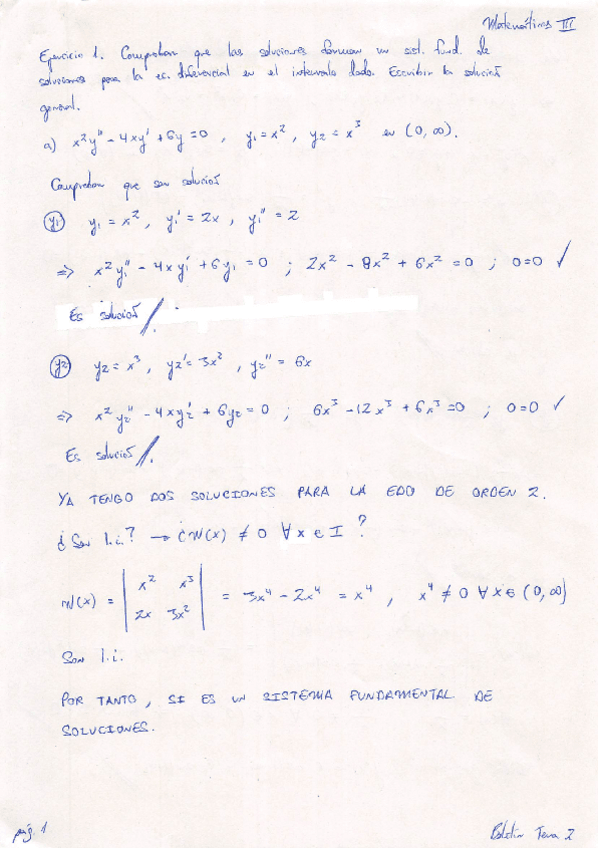 Matemáticas III
Ejercicio 1. Comprobar que las soluciones forman un sist. fund. de
soluciones para la ec. diferencial en el intervalo dado. Escribir la solución
general.
a) x²y'' - 4xy' + 6y = 0 , y₁ = x² , y₂ = x³ en (0, ∞).
Comprobar que son solución
y₁ y₁ = x² , y₁' = 2x , y₁'' = 2
=> x²y₁'' - 4xy₁' + 6y₁ = 0 ; 2x² - 8x² + 6x² = 0 ; 0=0 ✓
Es solución //.
y₂ y₂ = x³ , y₂' = 3x² , y₂'' = 6x
=> x²y₂'' - 4xy₂' + 6y₂ = 0 ; 6x³ - 12x³ + 6x³ = 0 ; 0=0 ✓
Es solución //.
YA TENGO DOS SOLUCIONES PARA LA EDO DE ORDEN 2.
¿Son l.i.? → ¿W(x) ≠ 0 ∀x ∈ I ?
W(x) = | x² x³ ; 2x 3x² | = 3x⁴ - 2x⁴ = x⁴ , x⁴ ≠ 0 ∀x ∈ (0, ∞)
Son l.i.
POR TANTO, SI ES UN SISTEMA FUNDAMENTAL DE
SOLUCIONES.
pág. 1
Boletín Tema 2